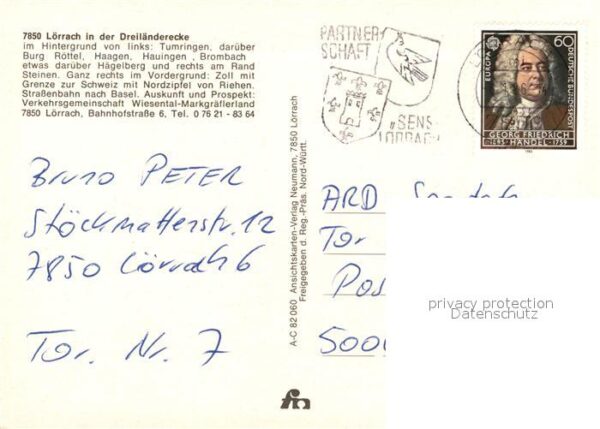 7850 Lörrach in der Dreiländerecke
im Hintergrund von links: Tumringen, darüber
Burg Röttel, Haagen, Hauingen, Brombach
etwas darüber Hägelberg und rechts am Rand
Steinen. Ganz rechts im Vordergrund: Zoll mit
Grenze zur Schweiz mit Nordzipfel von Riehen.
Straßenbahn nach Basel. Auskunft und Prospekt:
Verkehrsgemeinschaft Wiesental-Markgräflerland
7850 Lörrach, Bahnhofstraße 6, Tel. 0 76 21 - 83 64
Bruno PETER
Stöckmattenstr. 12
7850 Lörrach 6
Tor. Nr. 7
A-C 82 060 Ansichtskarten-Verlag Neumann, 7850 Lörrach
Freigegeben d. Reg.-Präs. Nord-Württ.
PARTNER
SCHAFT
SENS
LÖRRACH
EUROPA
60
DEUTSCHE BUNDESPOST
GEORG FRIEDRICH
HÄNDEL
1685 1759
ARD
Tor
Pos
500
privacy protection
Datenschutz